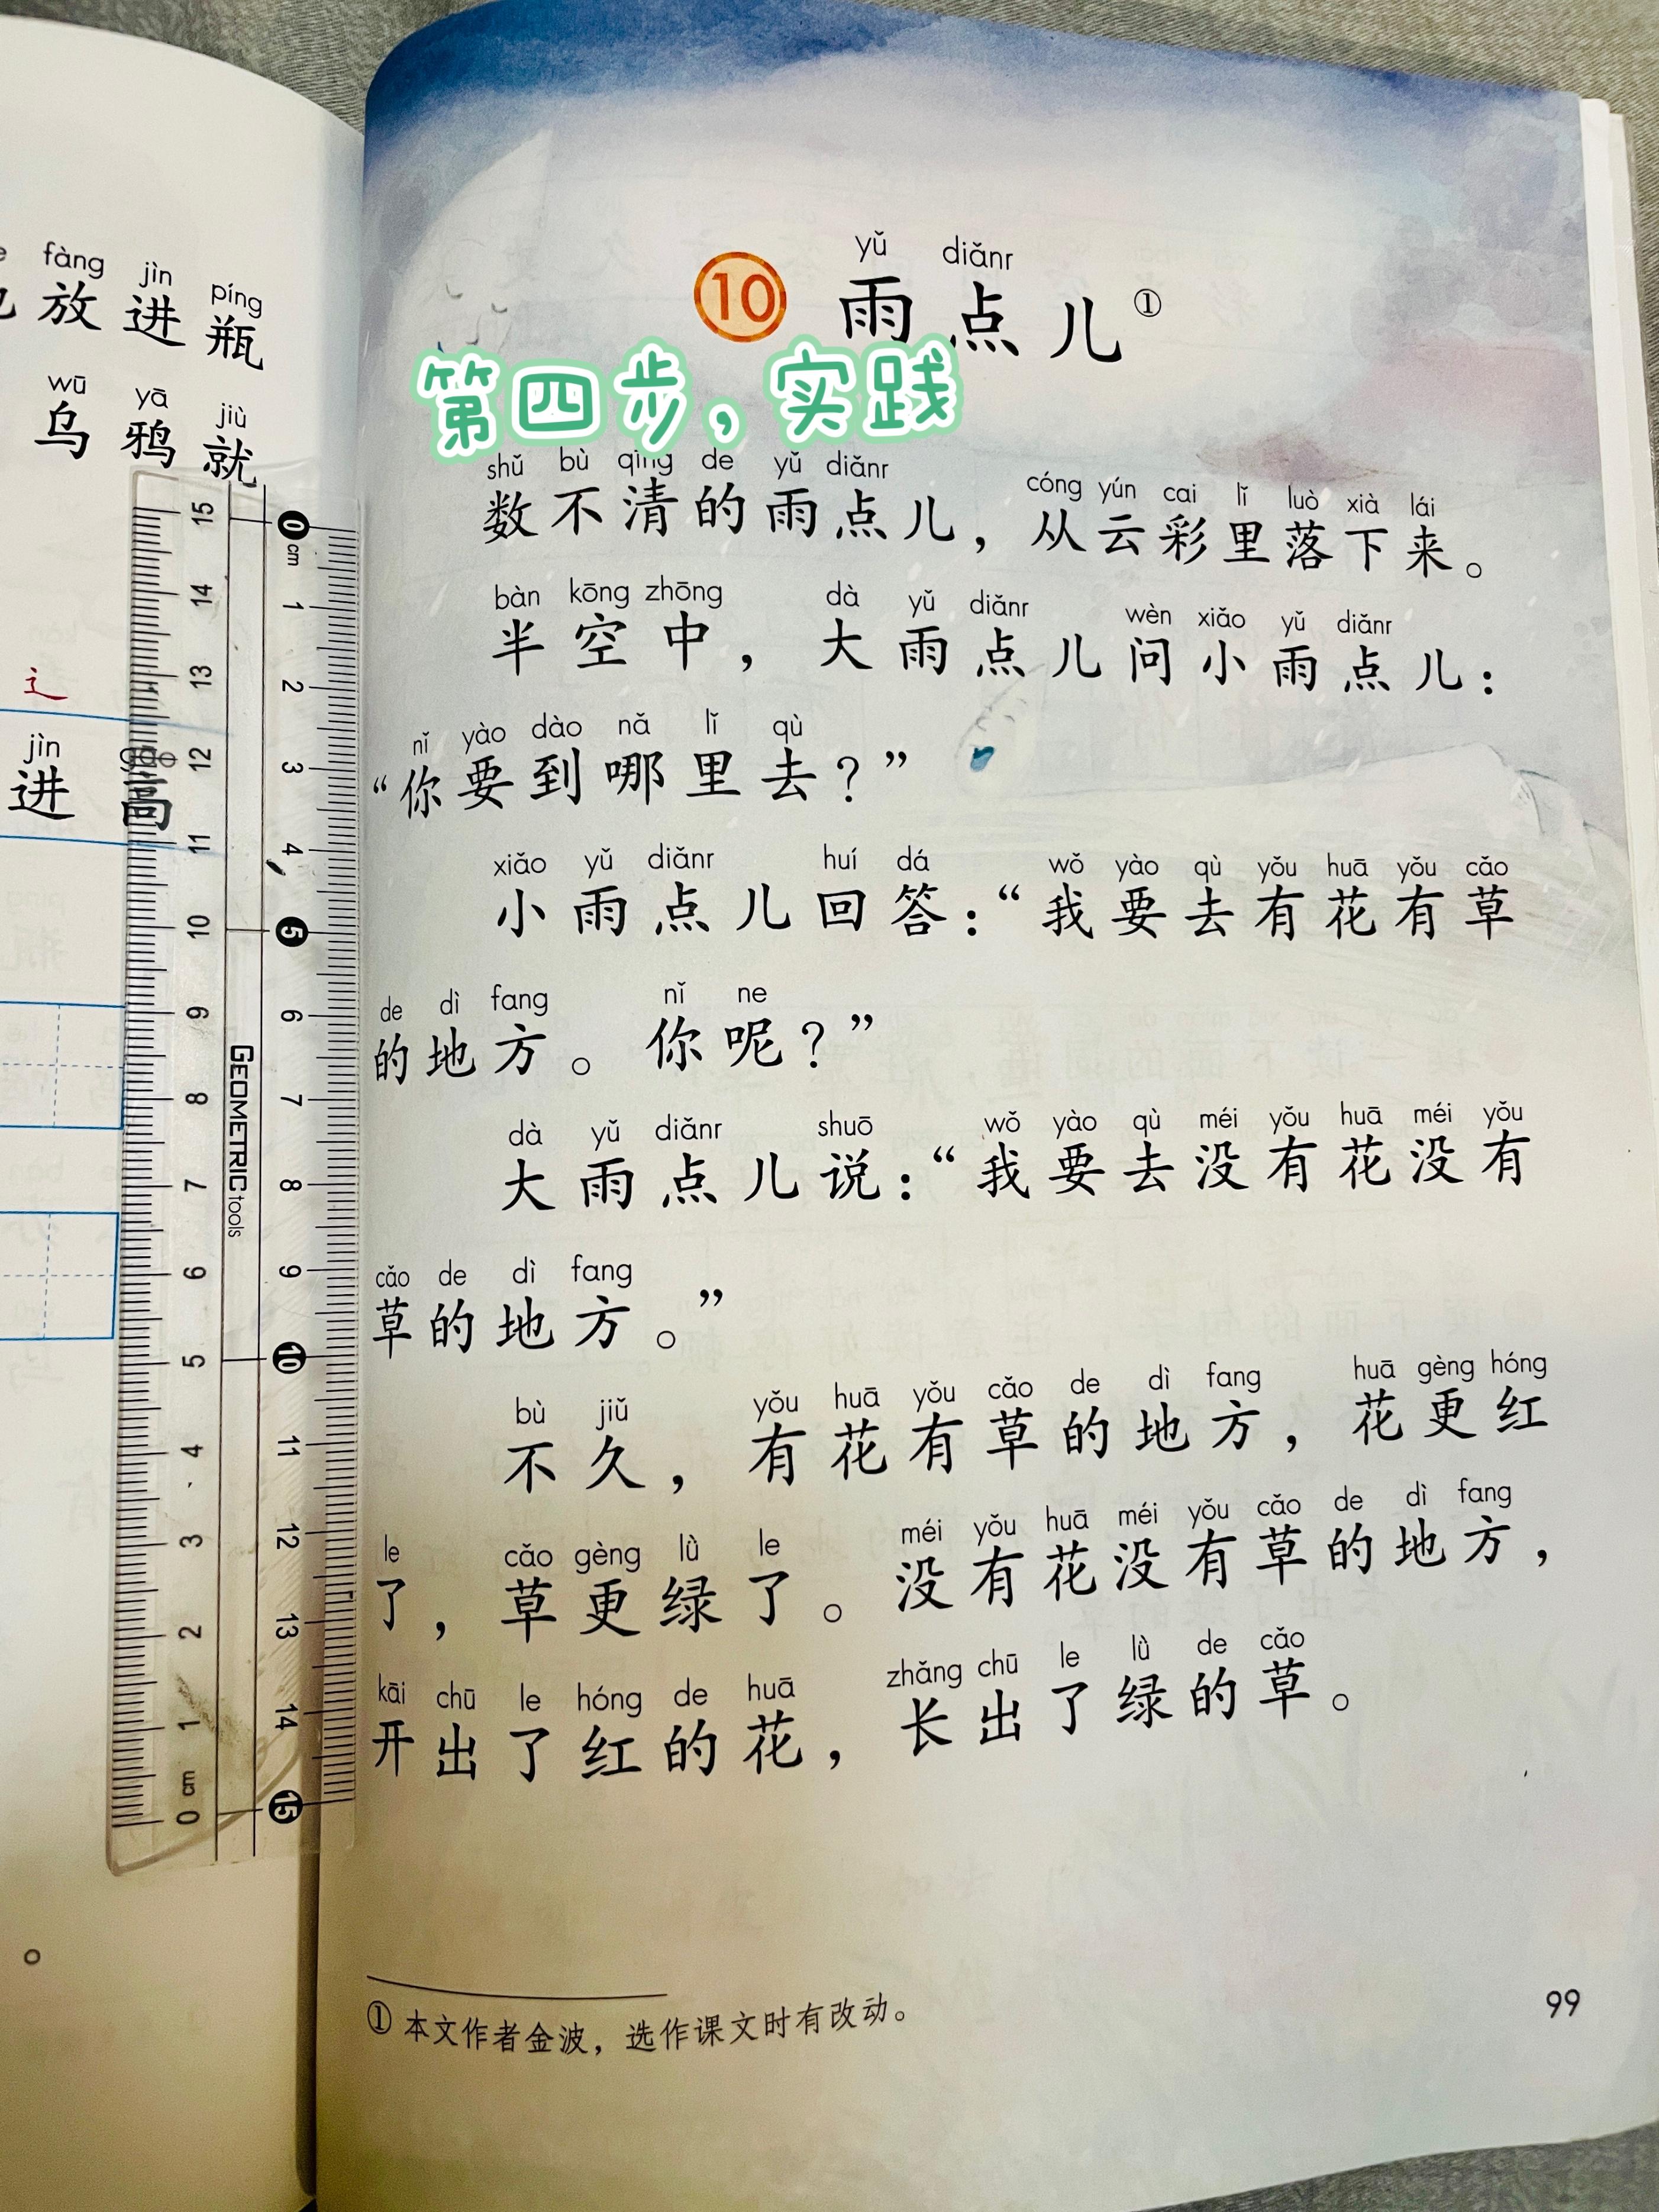 fàng jìn píng
放进瓶
wū yā jiù
乌鸦就
辶
jìn gāo
进高
。
15 14 13 12 11 10 9 8 7 6 5 4 3 2 1 0 cm
GEOMETRIC tools
0 cm 1 2 3 4 5 6 7 8 9 10 11 12 13 14 15
yǔ diǎnr
10 雨点儿①
第四步，实践
shǔ bù qīng de yǔ diǎnr cóng yún cai lǐ luò xià lái
数不清的雨点儿，从云彩里落下来。
bàn kōng zhōng dà yǔ diǎnr wèn xiǎo yǔ diǎnr
半空中，大雨点儿问小雨点儿：
nǐ yào dào nǎ lǐ qù
“你要到哪里去？”
xiǎo yǔ diǎnr huí dá wǒ yào qù yǒu huā yǒu cǎo
小雨点儿回答：“我要去有花有草
de dì fang nǐ ne
的地方。你呢？”
dà yǔ diǎnr shuō wǒ yào qù méi yǒu huā méi yǒu
大雨点儿说：“我要去没有花没有
cǎo de dì fang
草的地方。”
bù jiǔ yǒu huā yǒu cǎo de dì fang huā gèng hóng
不久，有花有草的地方，花更红
le cǎo gèng lǜ le méi yǒu huā méi yǒu cǎo de dì fang
了，草更绿了。没有花没有草的地方，
kāi chū le hóng de huā zhǎng chū le lǜ de cǎo
开出了红的花，长出了绿的草。
① 本文作者金波，选作课文时有改动。
99